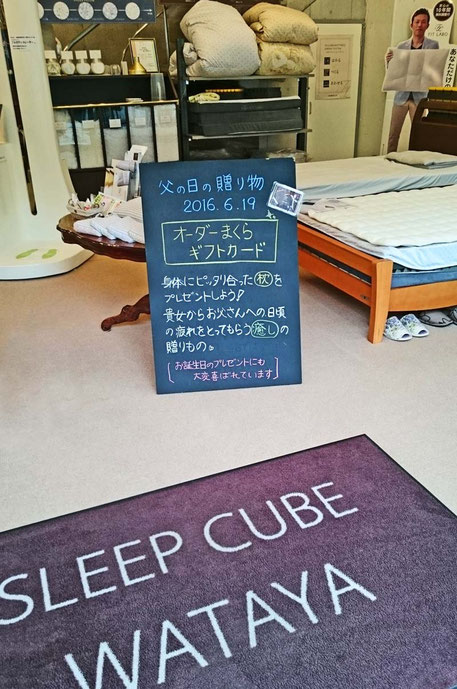 FIT LABO
父の日の贈り物
2016.6.19
オーダーまくら
ギフトカード
身体にピッタリ合った枕を
プレゼントしよう♪
貴女からお父さんへの日頃
の疲れをとってもらう癒しの
贈りもの。
[お誕生日のプレゼントにも
大変喜ばれています]
SLEEP CUBE
WATAYA